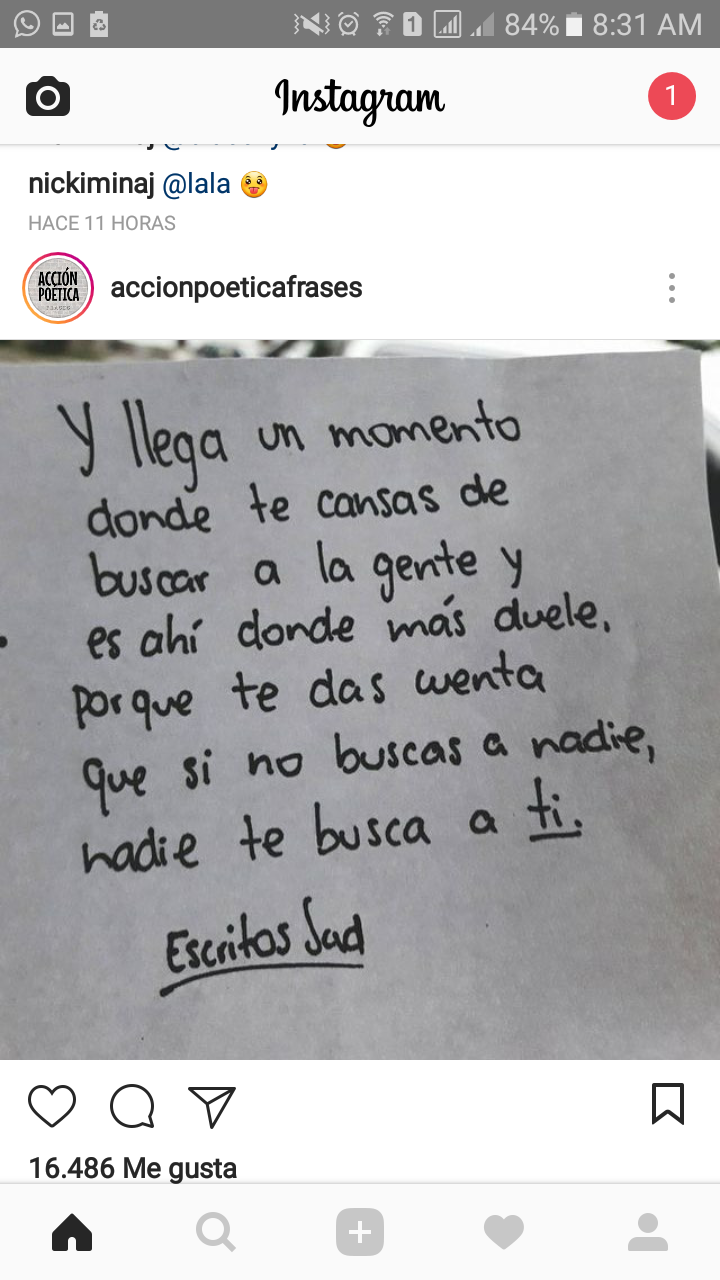 84% 8:31 AM
Instagram
1
nickiminaj @lala
HACE 11 HORAS
ACCIÓN
POÉTICA
FRASES
accionpoeticafrases
Y llega un momento
donde te cansas de
buscar a la gente y
es ahí donde más duele,
porque te das cuenta
que si no buscas a nadie,
nadie te busca a ti.
Escritos Sad
16.486 Me gusta